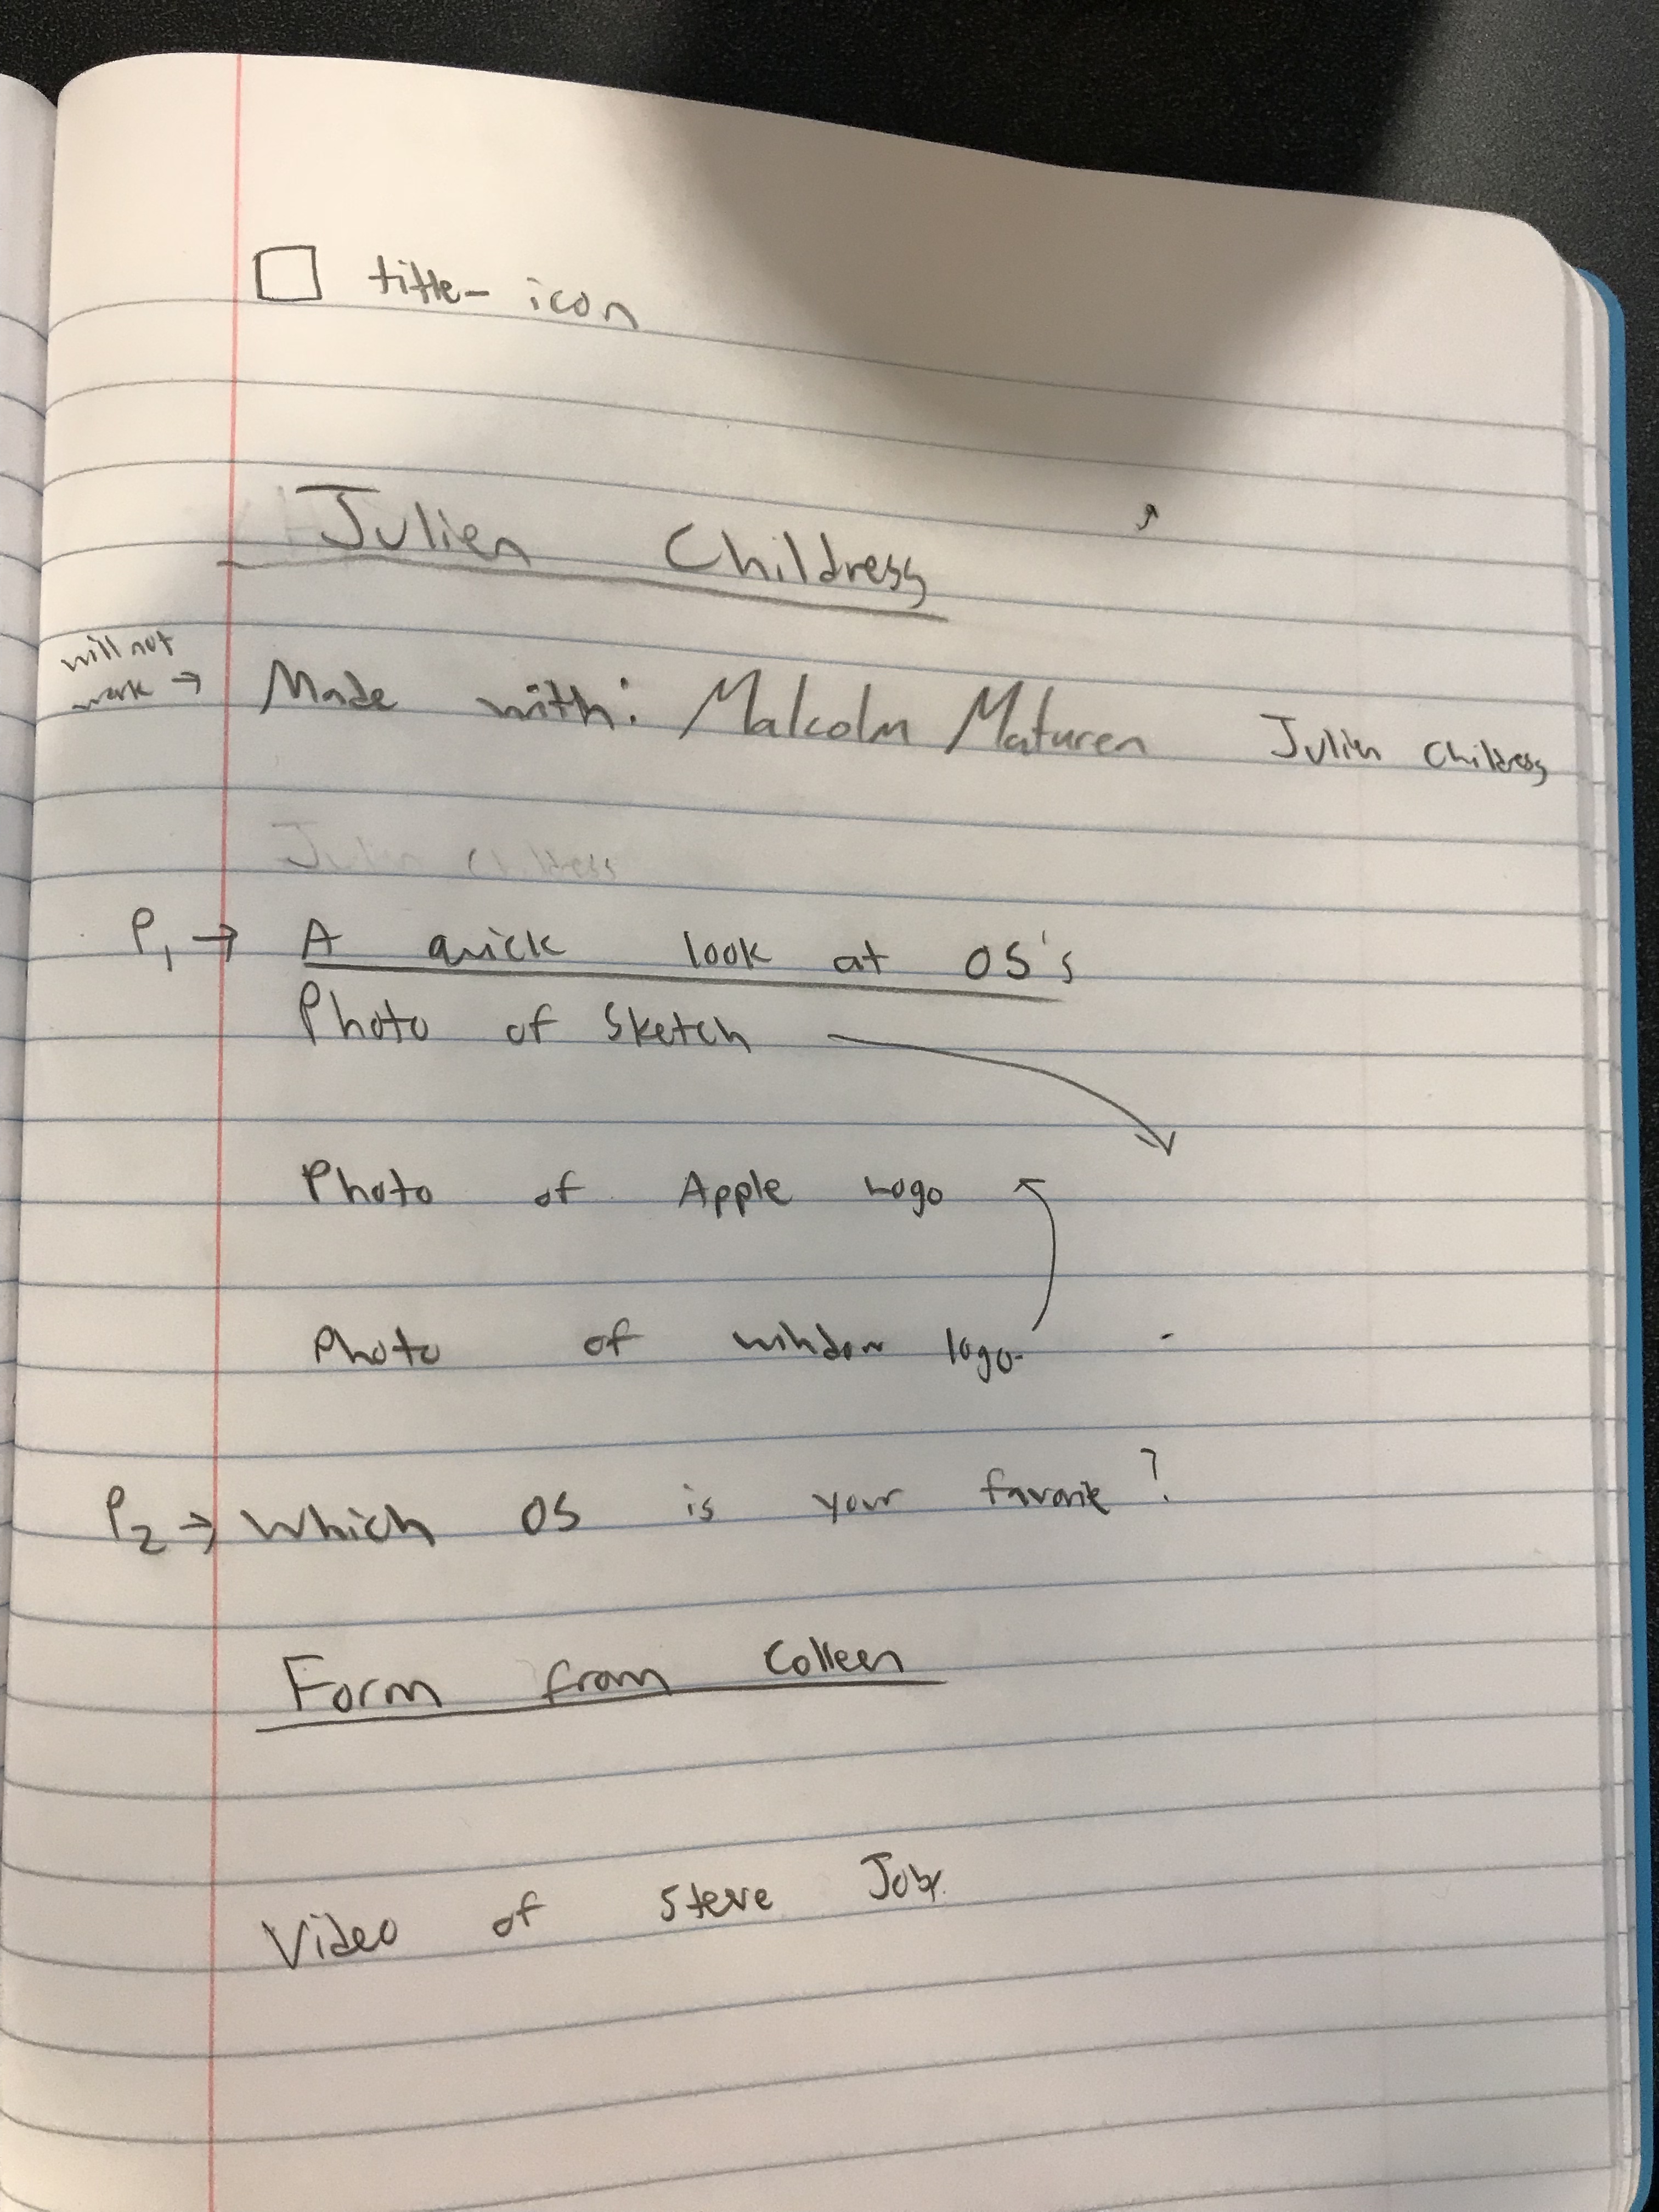 title- icon
Julien Childress
will not
work → Made with: Malcolm Maturen Julien Childress
Julien Childress
P1 → A quick look at OS's
Photo of Sketch
Photo of Apple Logo
Photo of window logo
P2 → Which OS is your favorite?
Form from Colleen
Video of Steve Jobs